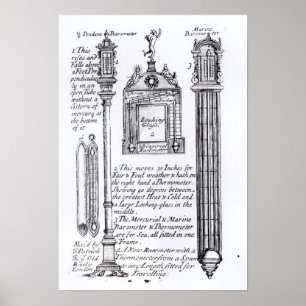 Y Pendent Barometer
Marine
Barometer
1 This
rises and
Falls above
2 Foot Per-
pendicula-
rly in an
open Tube
without a
Cistern
of mercury
at the
bottom
of it
1
3
Looking
Glass.
2
2 This moves 30 Inches for
Fair & Foul weather & hath on
the right hand a Thermometer.
Shewing 90 degrees between
the greatest Heat & Cold and
a large Looking-glass in the
middle.
3 The Mercurial & Marine
Barometer & Thermometer
are for Sea, all fitted in one
Frame.
4 A New Barometer with a
Thermometer from a Span
to any Length fitted for
Traveling.
Made by
St Patrick
in ye Old
Baily
London